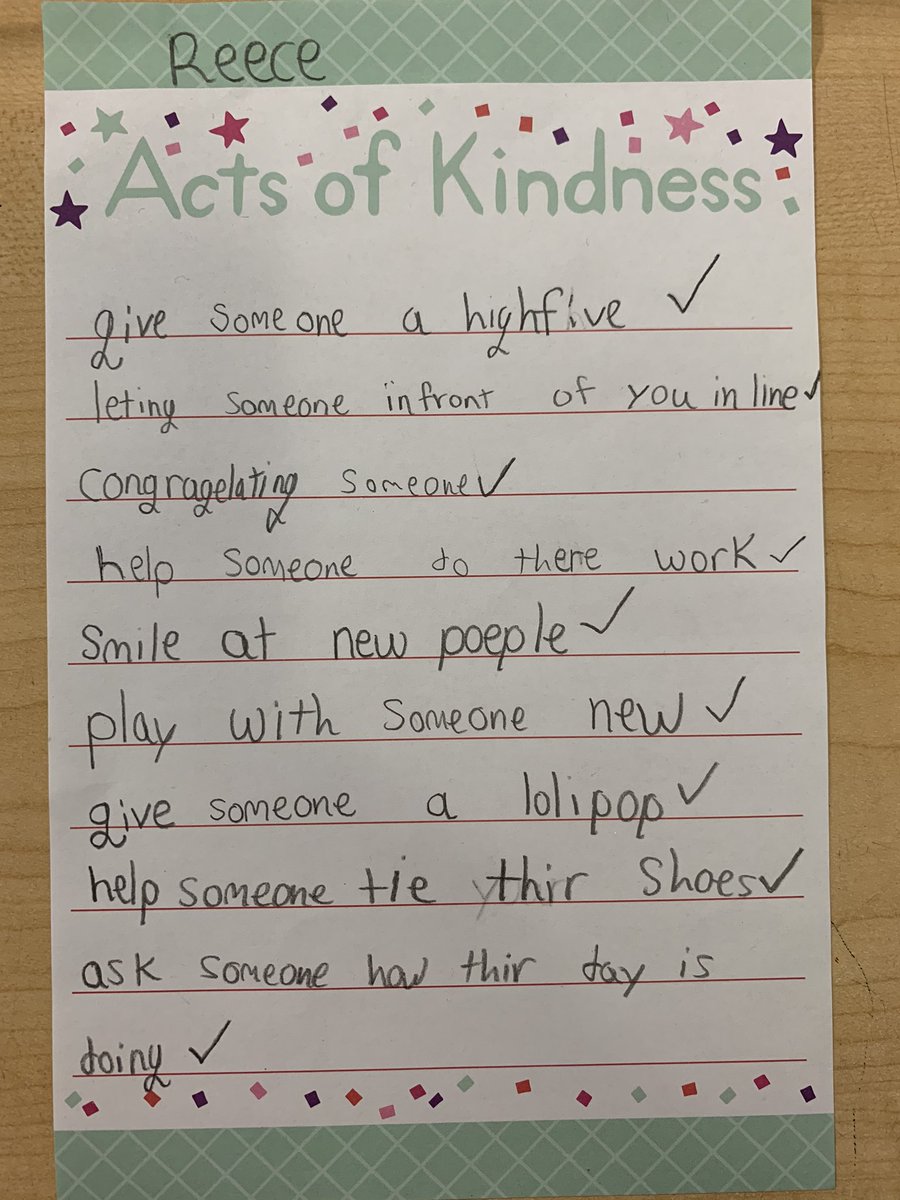 Reece
Acts of Kindness
give someone a highfive ✓
leting someone infront of you in line ✓
Congragelating someone ✓
help someone do there work ✓
Smile at new poeple ✓
play with someone new ✓
give someone a lolipop ✓
help someone tie thirr Shoes ✓
ask someone how thir day is
doing ✓